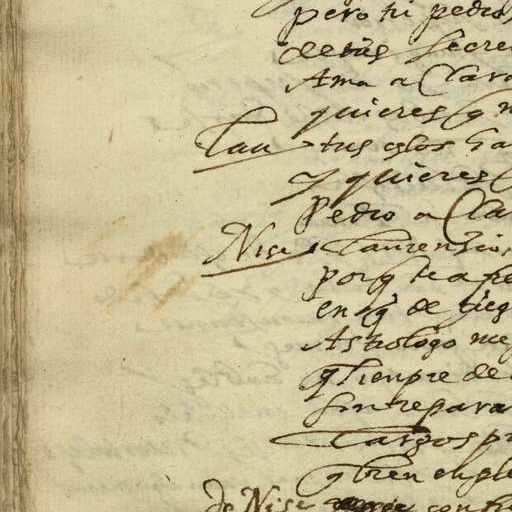 pero tu pedro
de tus secre
Ama a Clara
quieres q
Lau tus çelos ha
y quieres
Pedro a Cla
Nise Laurençio
porq te a pe
en q de
Astrologo me
q sienpre de
sin repara
Largos p
q bien
de Nise con